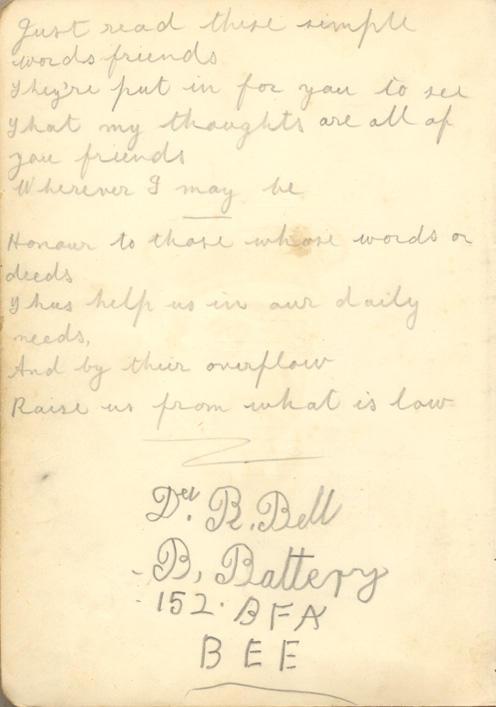 Just read these simple
words friends
They're put in for you to see
That my thoughts are all of
you friends
Wherever I may be
Honour to those whose words or
deeds
Thus help us in our daily
needs,
And by their overflow
Raise us from what is low
Dvr. R. Bell
B, Battery
152. BFA
BEE